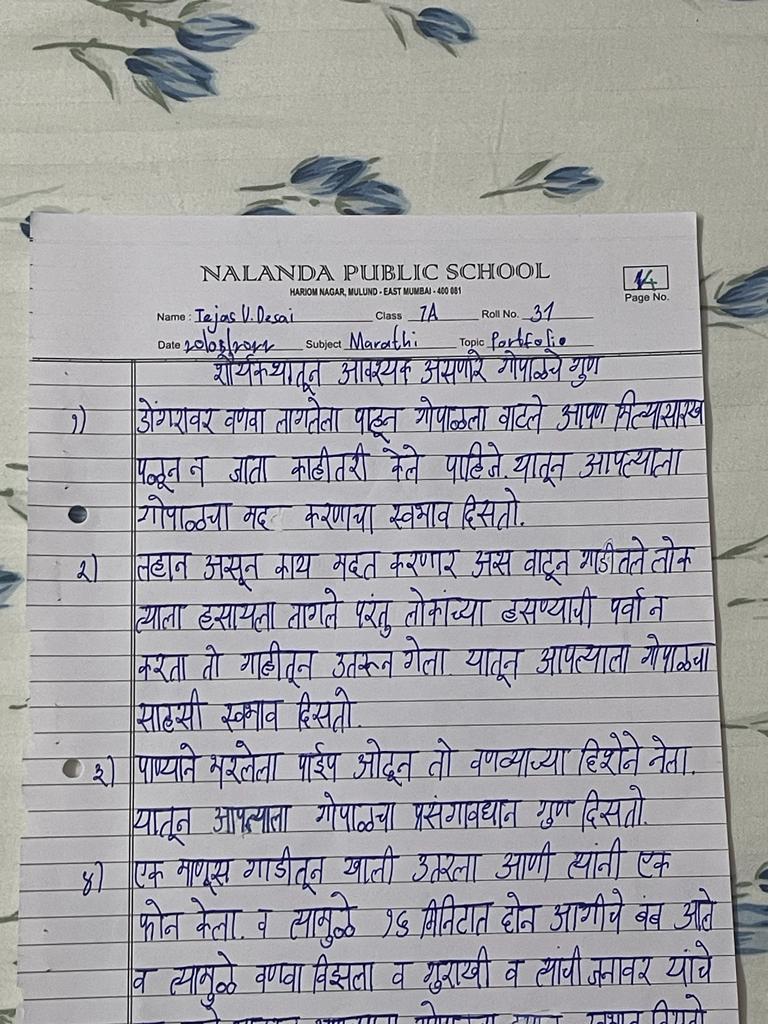 NALANDA PUBLIC SCHOOL
HARIOM NAGAR, MULUND - EAST MUMBAI - 400 081
14
Page No.
Name : Tejas V. Desai Class 7A Roll No. 31
Date Subject Marathi Topic Portfolio
शौर्यकथातून आवश्यक असणारे गोपाळचे गुण
१) डोंगरावर वणवा लागलेला पाहून गोपाळला वाटले आपण भित्र्यासारख
पळून न जाता काहीतरी केले पाहिजे. यातून आपल्याला
गोपाळचा मद करणाचा स्वभाव दिसतो.
२) लहान असून काय मदत करणार अस वाटून गाडीतले लोक
त्याला हसायला लागले परंतु लोकांच्या हसण्याची पर्वा न
करता तो गाडीतून उतरून गेला. यातून आपल्याला गोपाळचा
साहसी स्वभाव दिसतो.
३) पाण्याने भरलेला पाईप ओढून तो वणव्याच्या दिशेने नेला.
यातून आपल्याला गोपाळचा प्रसंगावधान गुण दिसतो.
४) एक माणूस गाडीतून खाली उतरला आणी त्यांनी एक
फोन केला. व त्यामुळे १६ मिनिटात दोन आगीचे बंब आले
व त्यामुळे वणवा विझला व गुराखी व त्यांची जनावर यांचे